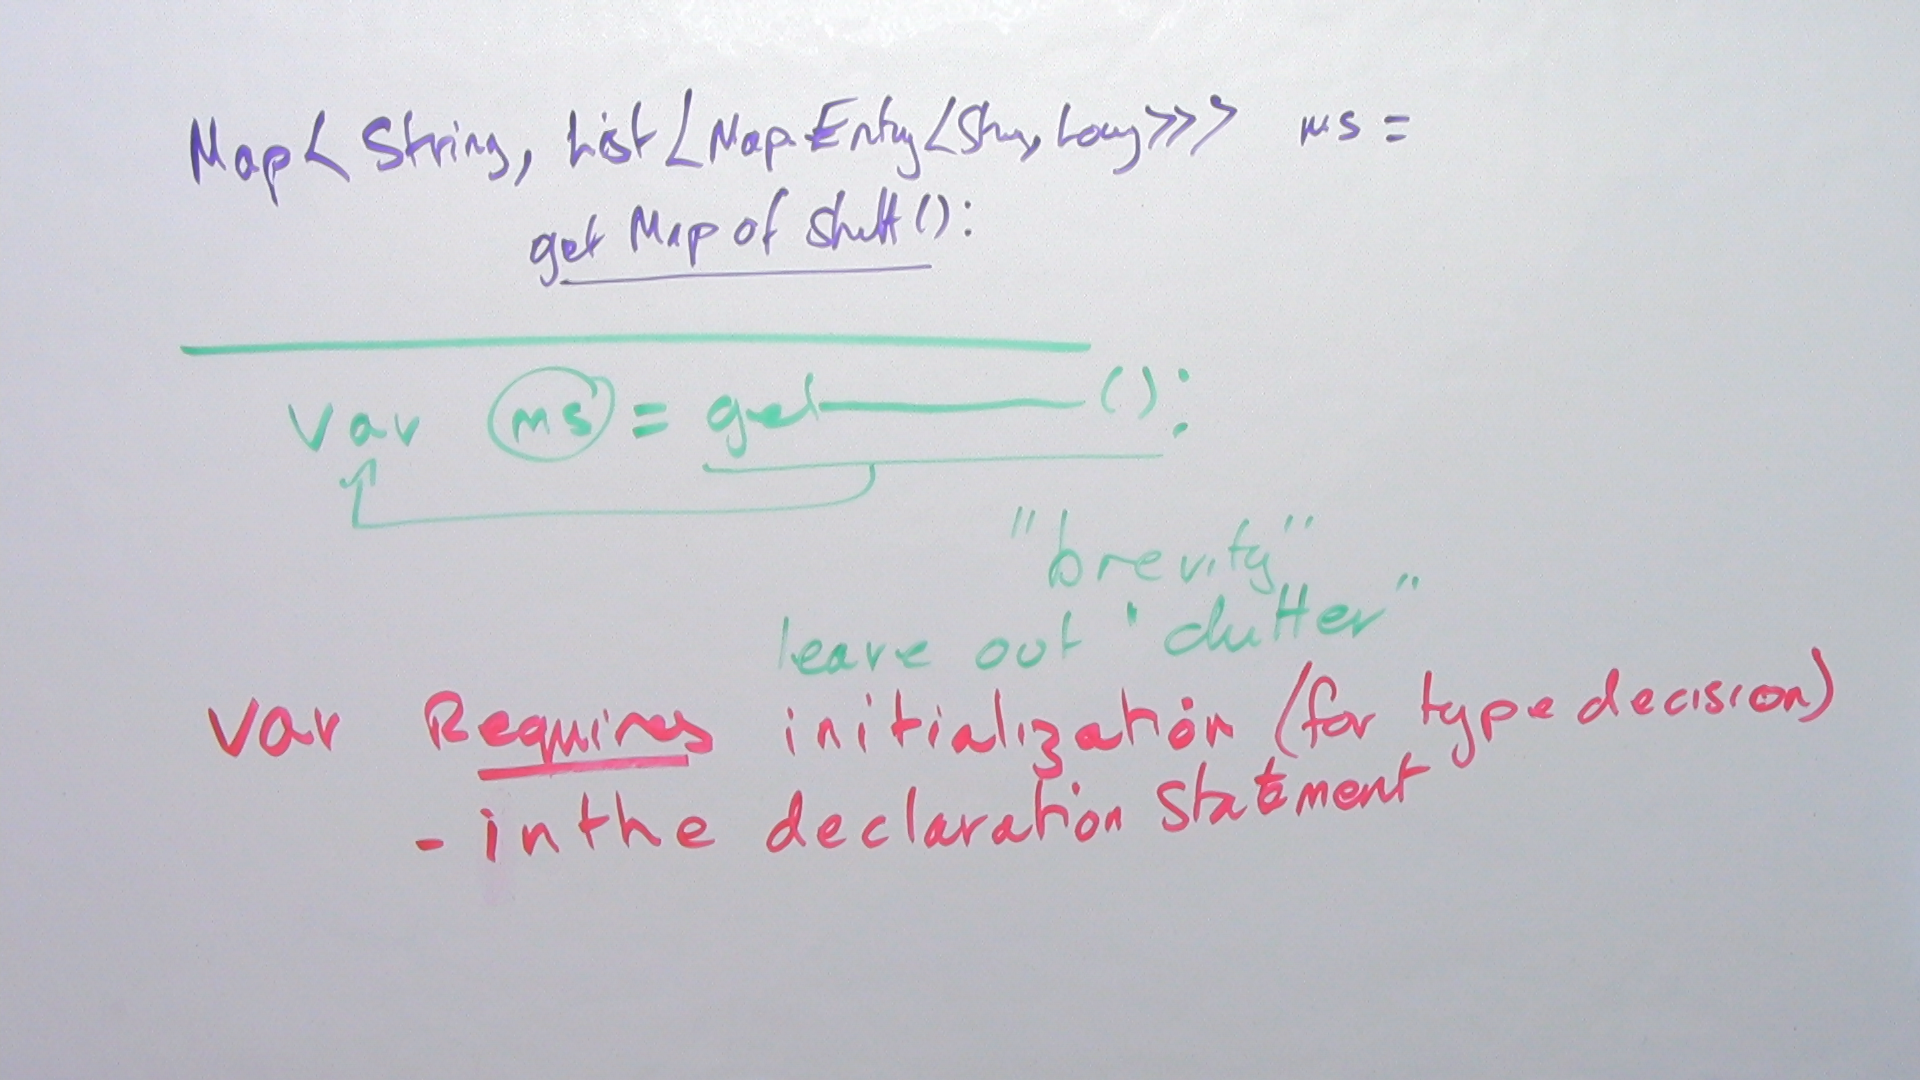 Map< String, List<Map.Entry<Str, Long>>> ms =
get Map of Stuff():
var ms = get ():
"brevity"
leave out "clutter"
var Requires initialization (for type decision)
- in the declaration statement